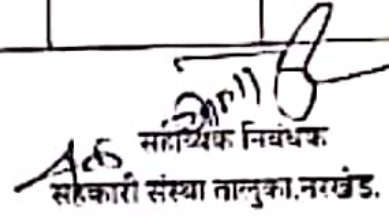 सहाय्यक निबंधक
सहकारी संस्था तालुका.नरखेड.